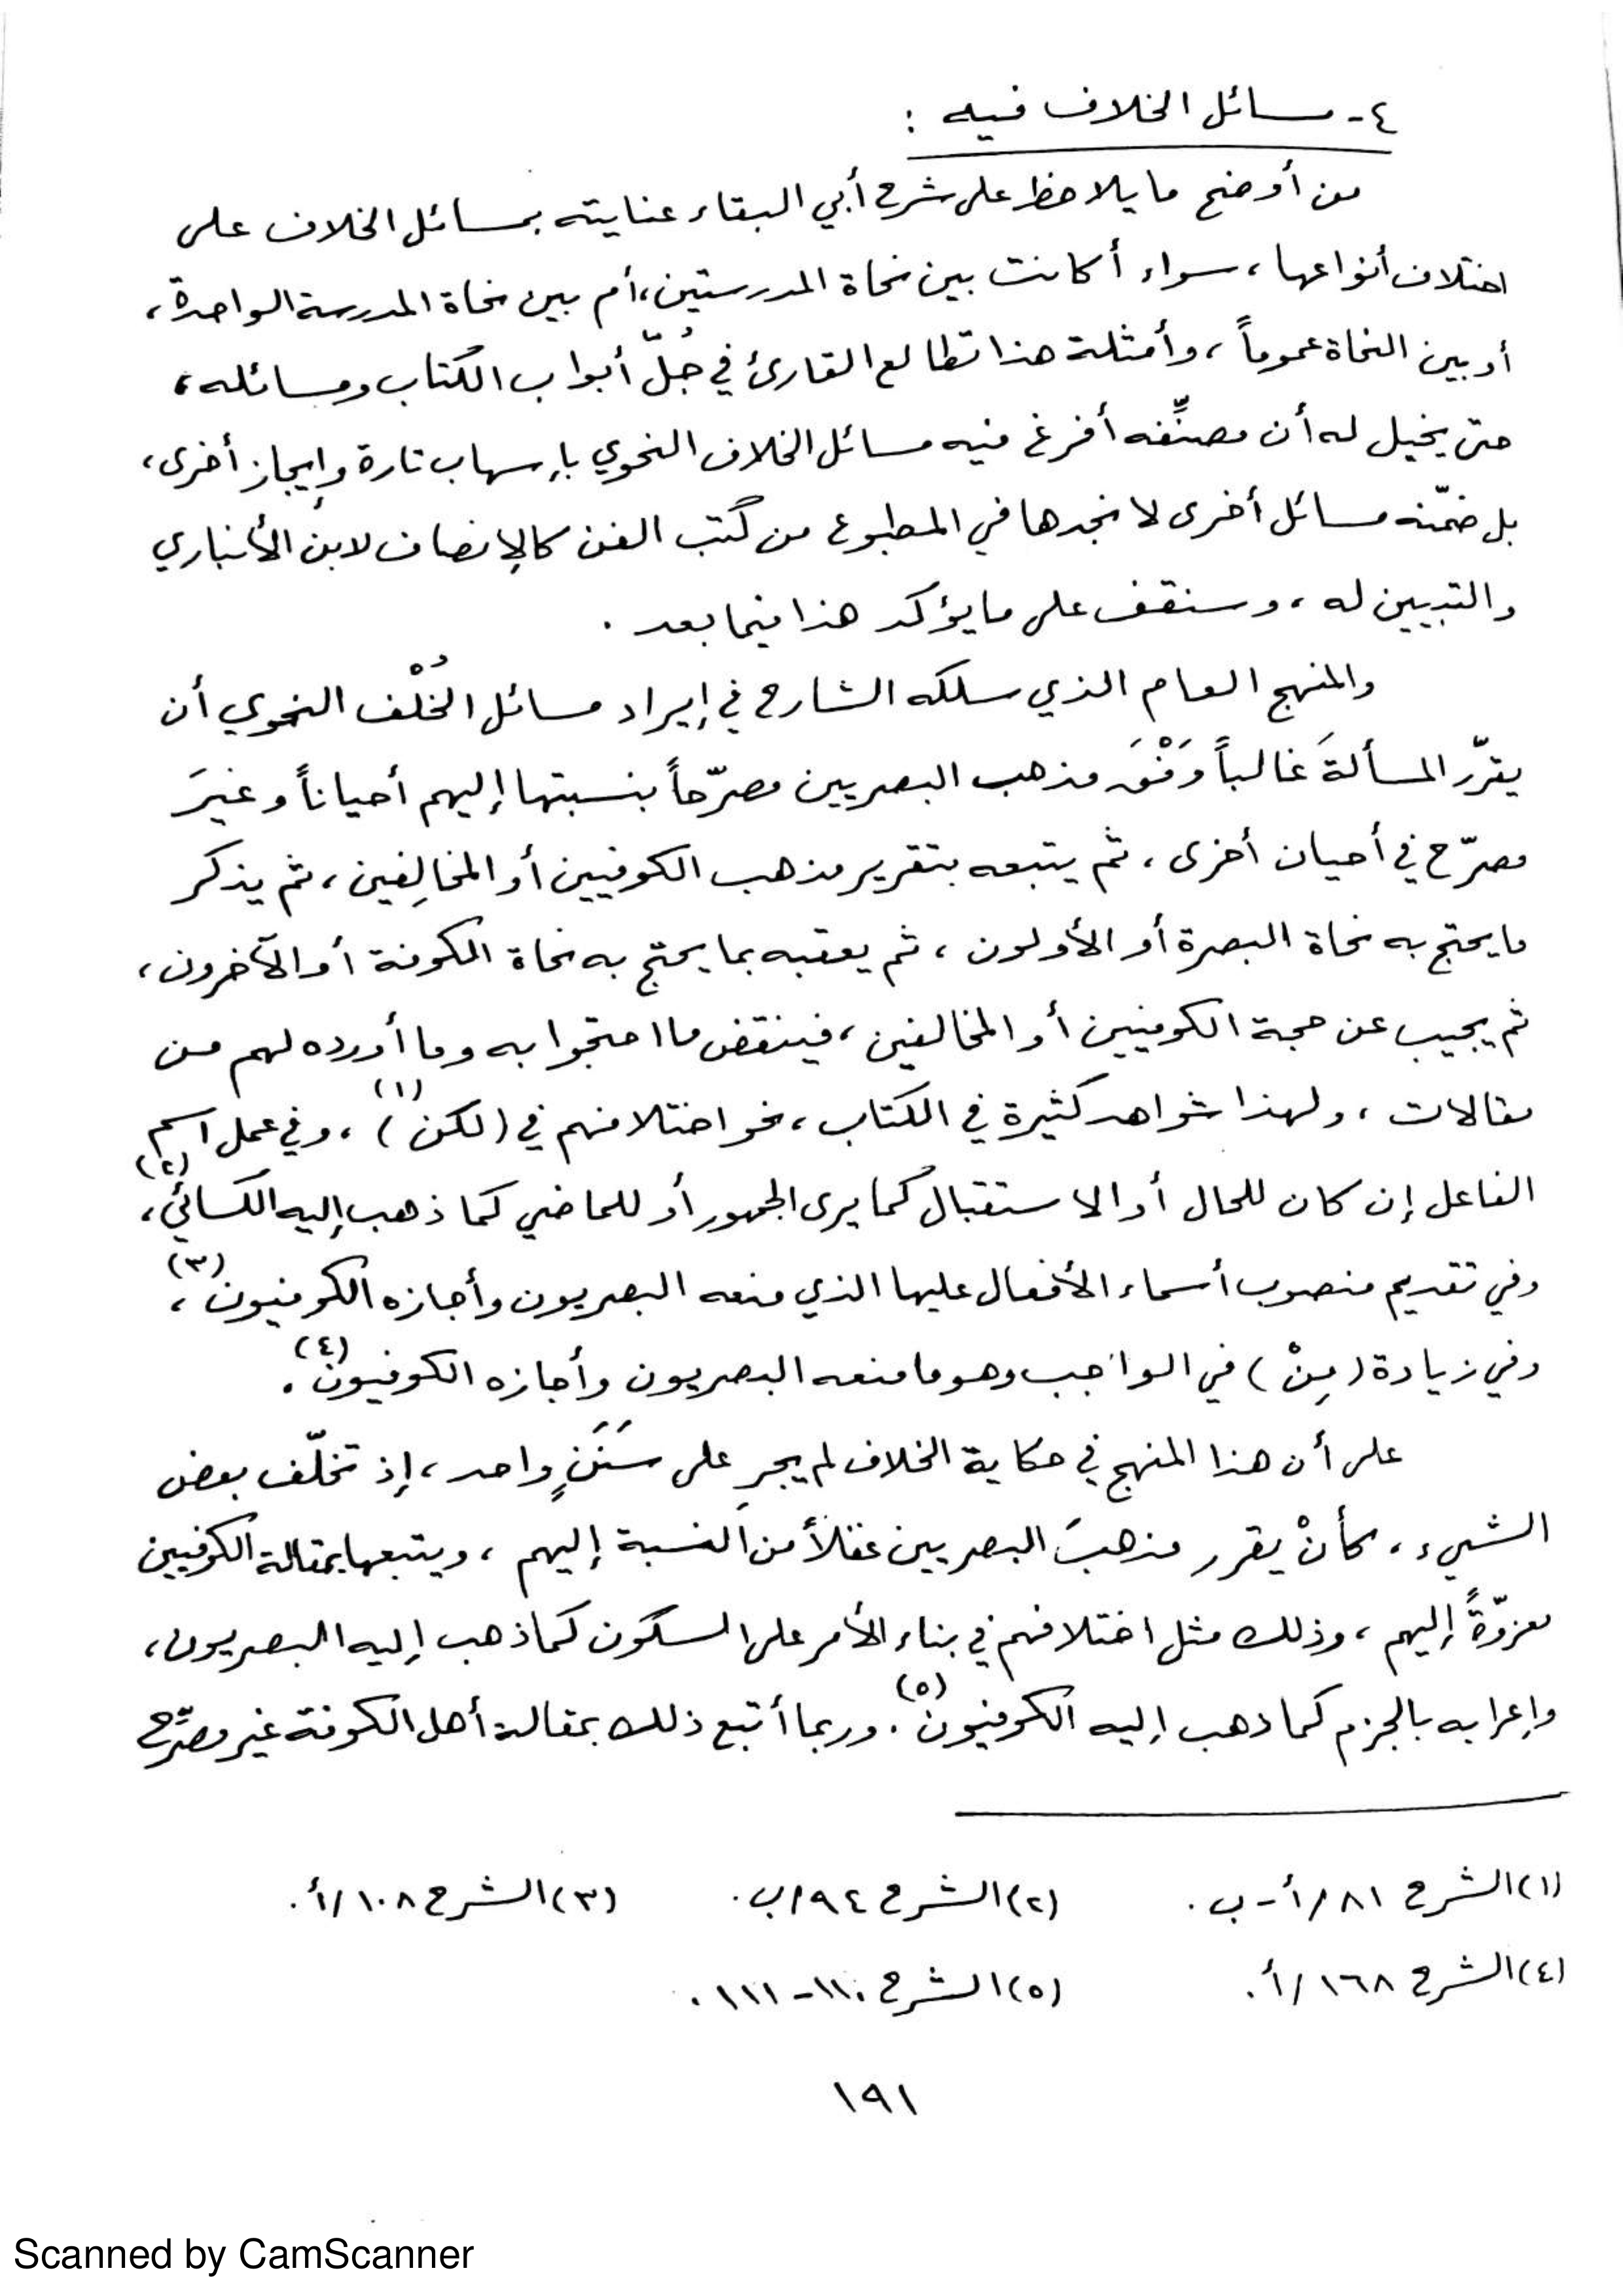 ٤- مسائل الخلاف فيه :
من أوضح ما يلاحظ على شرح أبي البقاء عنايته بمسائل الخلاف على
اختلاف أنواعها ، سواء أكانت بين نحاة المدرستين ، أم بين نحاة المدرسة الواحدة ،
أو بين النحاة عموماً ، وأمثلة هذا تطالع القارئ في جُلّ أبواب الكتاب ومسائله ،
حتى يخيل له أن مصنِّفه أفرغ فيه مسائل الخلاف النحوي بإسهاب تارة وإيجاز أخرى ،
بل ضمّنه مسائل أخرى لا نجدها في المطبوع من كتب الفن كالإنصاف لابن الأنباري
والتبيين له ، وسنقف على ما يؤكد هذا فيما بعد .
والمنهج العام الذي سلكه الشارح في إيراد مسائل الخُلْف النحوي أن
يقرّر المسألةَ غالباً وَفْقَ مذهب البصريين مصرّحاً بنسبتها إليهم أحياناً وغيرَ
مصرّح في أحيان أخرى ، ثم يتبعه بتقرير مذهب الكوفيين أو المخالِفين ، ثم يذكر
ما يحتج به نحاة البصرة أو الأولون ، ثم يعقبه بما يحتج به نحاة الكوفة أو الآخرون ،
ثم يجيب عن حجة الكوفيين أو المخالفين ، فينقض ما احتجوا به وما أورده لهم من
مقالات ، ولهذا شواهد كثيرة في الكتاب ، نحو اختلافهم في (لكن)(١) ، وفي عمل اسم
الفاعل إن كان للحال أو الاستقبال كما يرى الجمهور أو للماضي كما ذهب إليه الكسائي(٢) ،
وفي تقديم منصوب أسماء الأفعال عليها الذي منعه البصريون وأجازه الكوفيون(٣) ،
وفي زيادة (مِنْ) في الواجب وهو ما منعه البصريون وأجازه الكوفيون(٤) .
على أن هذا المنهج في حكاية الخلاف لم يجرِ على سَنَنٍ واحد ، إذ تخلّف بعض
الشيء ، كأنْ يقرر مذهبَ البصريين غفلاً من النسبة إليهم ، ويتبعها بمقالة الكوفيين
معزوّةً إليهم ، وذلك مثل اختلافهم في بناء الأمر على السكون كما ذهب إليه البصريون ،
وإعرابه بالجزم كما ذهب إليه الكوفيون(٥) . وربما أتبع ذلك بمقالة أهل الكوفة غير مصرِّح
(١) الشرح ٨١/أ-ب . (٢) الشرح ٩٤/ب . (٣) الشرح ١٠٨/أ .
(٤) الشرح ١٦٨/أ . (٥) الشرح ١١٠-١١١ .
١٩١
Scanned by CamScanner